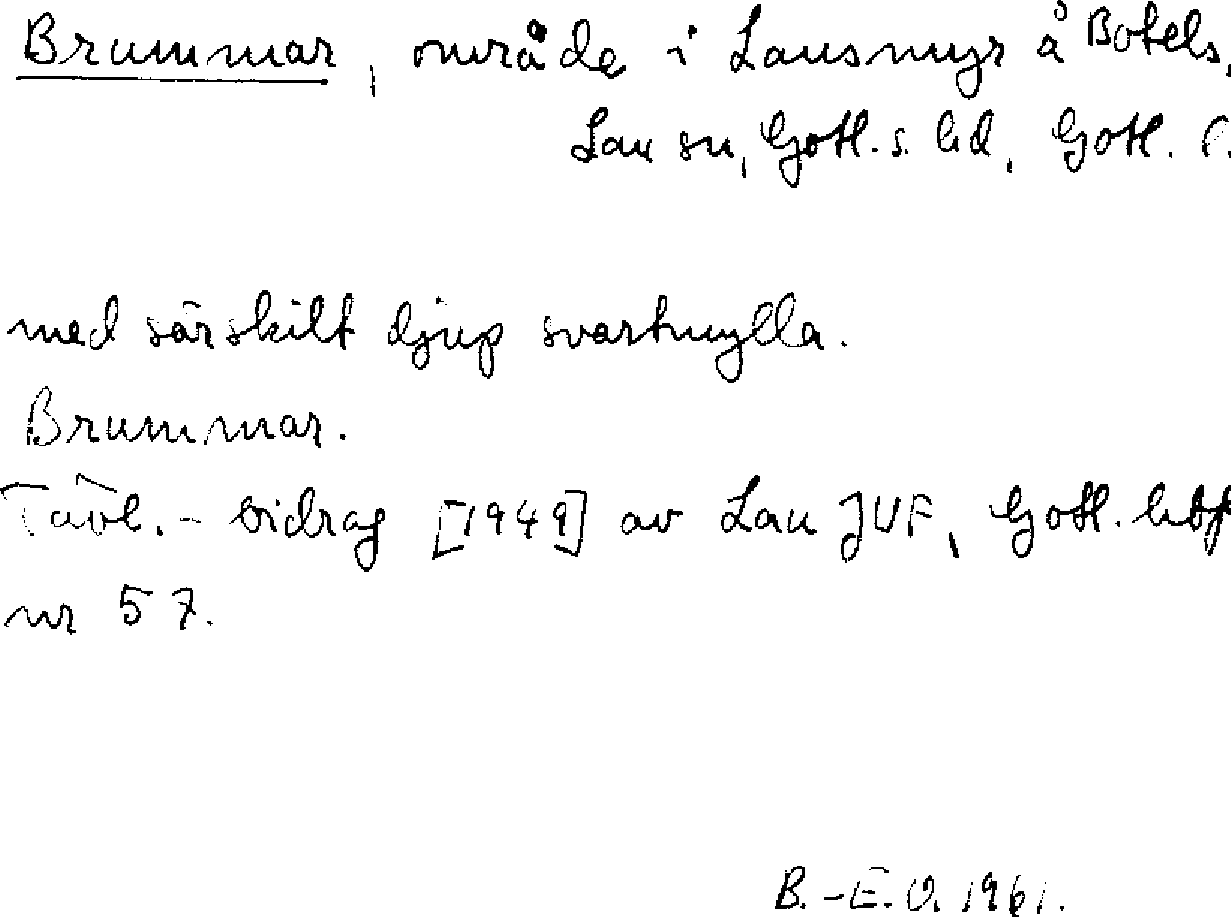 Brummar, område i Lausmyr å Botels,
Lau sn, Gotl. s. hd, Gotl. l.
med särskilt djup svartmylla.
Brummar.
Tävl.-bidrag [1949] av Lau JUF, Gotl. hbf
nr 57.
B.-E.O. 1961.